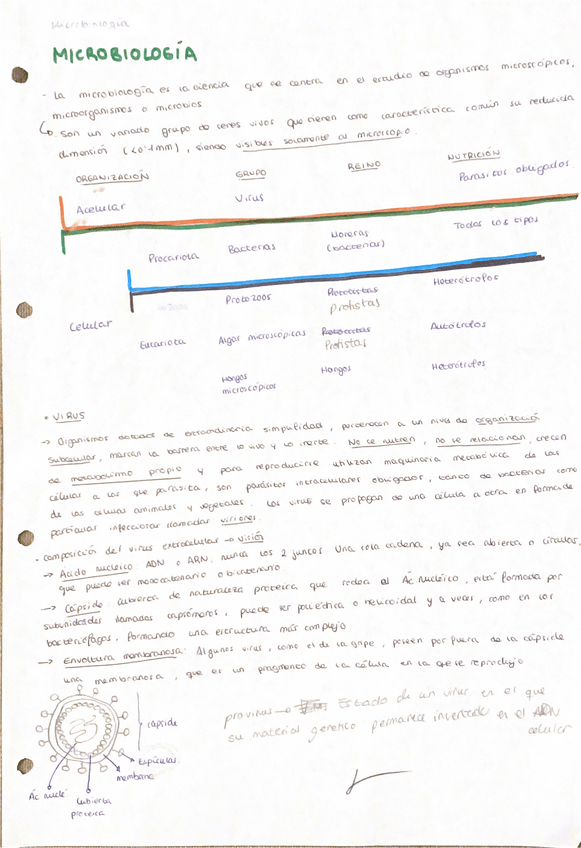 Microbiología
MICROBIOLOGÍA
- La microbiología es la ciencia que se centra en el estudio de organismos microscópicos,
microorganismos o microbios.
Son un variado grupo de seres vivos que tienen como característica común su reducida
dimensión (<0'1mm), siendo visibles solamente al microscopio.
ORGANIZACIÓN GRUPO REINO NUTRICIÓN
Acelular Virus Parásitos obligados
Procariota Bacterias Moneras Todos los tipos
(bacterias)
Celular
Protozoos Protoctistas Heterótrofos
Protistas
Eucariota Algas microscópicas Protoctistas Autótrofos
Protistas
Hongos Hongos Heterótrofos
microscópicos
• VIRUS
→ Organismos dotados de extraordinaria simplicidad, pertenecen a un nivel de organizació
subcelular, marcan la barrera entre lo vivo y lo inerte. No se nutren, no se relacionan, crecen
de metabolismo propio y para reproducirse utilizan maquinaria metabólica de las
células a las que parasita, son parásitos intracelulares obligados, tanto de bacterias como
de las células animales y vegetales. Los virus se propagan de una célula a otra en forma de
partículas infecciosas llamadas viriones.
- composición del virus extracelular → virión
→ Ácido nucleico. ADN o ARN, nunca los 2 juntos. Una sola cadena, ya sea abierta o circular,
que puede ser monocatenario o bicatenario
→ Cápside cubierta de naturaleza proteica que rodea al Ác Nucléico, está formada por
subunidades llamadas capsómeros, puede ser poliédrica o helicoidal y a veces, como en los
bacteriófagos, formando una estructura más complejo
→ Envoltura membranosa: Algunos virus, como el de la gripe, poseen por fuera de la cápside
una membranosa, que es un fragmento de la célula en la que se reprodujo
provirus → Estado de un virus en el que
su material genético permanece insertado en el ADN
celular
cápside
Espículas
membrana
Ác nuclé
Cubierta
proteica